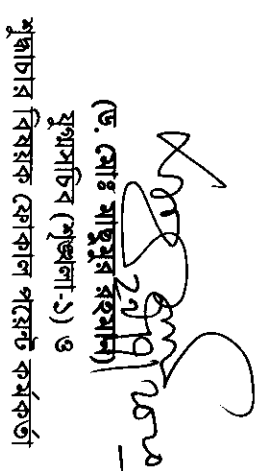 (ড. মোঃ মাছুমুর রহমান)
যুগ্মসচিব (শৃঙ্খলা-১) ও
শুদ্ধাচার বিষয়ক ফোকাল পয়েন্ট কর্মকর্তা